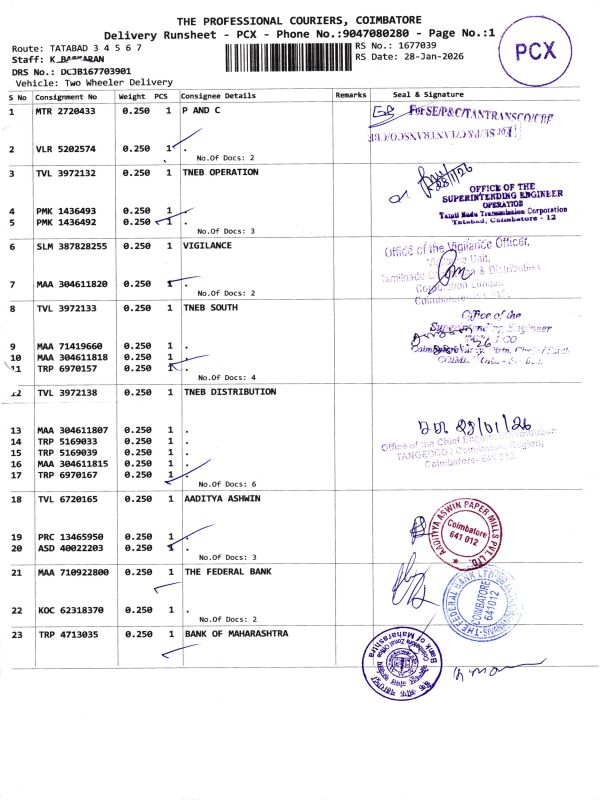 THE PROFESSIONAL COURIERS, COIMBATORE
Delivery Runsheet - PCX - Phone No.:9047080280 - Page No.:1
Route: TATABAD 3 4 5 6 7
RS No.: 1677039
Staff: K BASKARAN
RS Date: 28-Jan-2026
PCX
DRS No.: DCJB167703901
Vehicle: Two Wheeler Delivery
S No Consignment No Weight PCS Consignee Details Remarks Seal & Signature
1 MTR 2720433 0.250 1 P AND C
For SE/P&C/TANTRANSCO/CBE
2 VLR 5202574 0.250 1 .
No.Of Docs: 2
3 TVL 3972132 0.250 1 TNEB OPERATION
28/1/26
OFFICE OF THE
SUPERINTENDING ENGINEER
OPERATION
Tamil Nadu Transmission Corporation
Tatabad, Coimbatore - 12
4 PMK 1436493 0.250 1 .
5 PMK 1436492 0.250 1 .
No.Of Docs: 3
6 SLM 387828255 0.250 1 VIGILANCE
Office of the Vigilance Officer,
Vigilance Unit,
7 MAA 304611820 0.250 1 .
No.Of Docs: 2
8 TVL 3972133 0.250 1 TNEB SOUTH
Office of the
Superintending Engineer
9 MAA 71419660 0.250 1 .
10 MAA 304611818 0.250 1 .
11 TRP 6970157 0.250 1 .
No.Of Docs: 4
12 TVL 3972138 0.250 1 TNEB DISTRIBUTION
13 MAA 304611807 0.250 1 .
14 TRP 5169033 0.250 1 .
15 TRP 5169039 0.250 1 .
16 MAA 304611815 0.250 1 .
17 TRP 6970167 0.250 1 .
No.Of Docs: 6
Office of the Chief Engineer
TANGEDCO / Coimbatore Region,
Coimbatore- 641 012.
18 TVL 6720165 0.250 1 AADITYA ASHWIN
AADITYA ASWIN PAPER MILLS PVT. LTD.
Coimbatore
641 012
19 PRC 13465950 0.250 1 .
20 ASD 40022203 0.250 1 .
No.Of Docs: 3
21 MAA 710922800 0.250 1 THE FEDERAL BANK
THE FEDERAL BANK LTD
COIMBATORE
641012
22 KOC 62318370 0.250 1 .
No.Of Docs: 2
23 TRP 4713035 0.250 1 BANK OF MAHARASHTRA
Bank of Maharashtra
Coimbatore Zonal Office